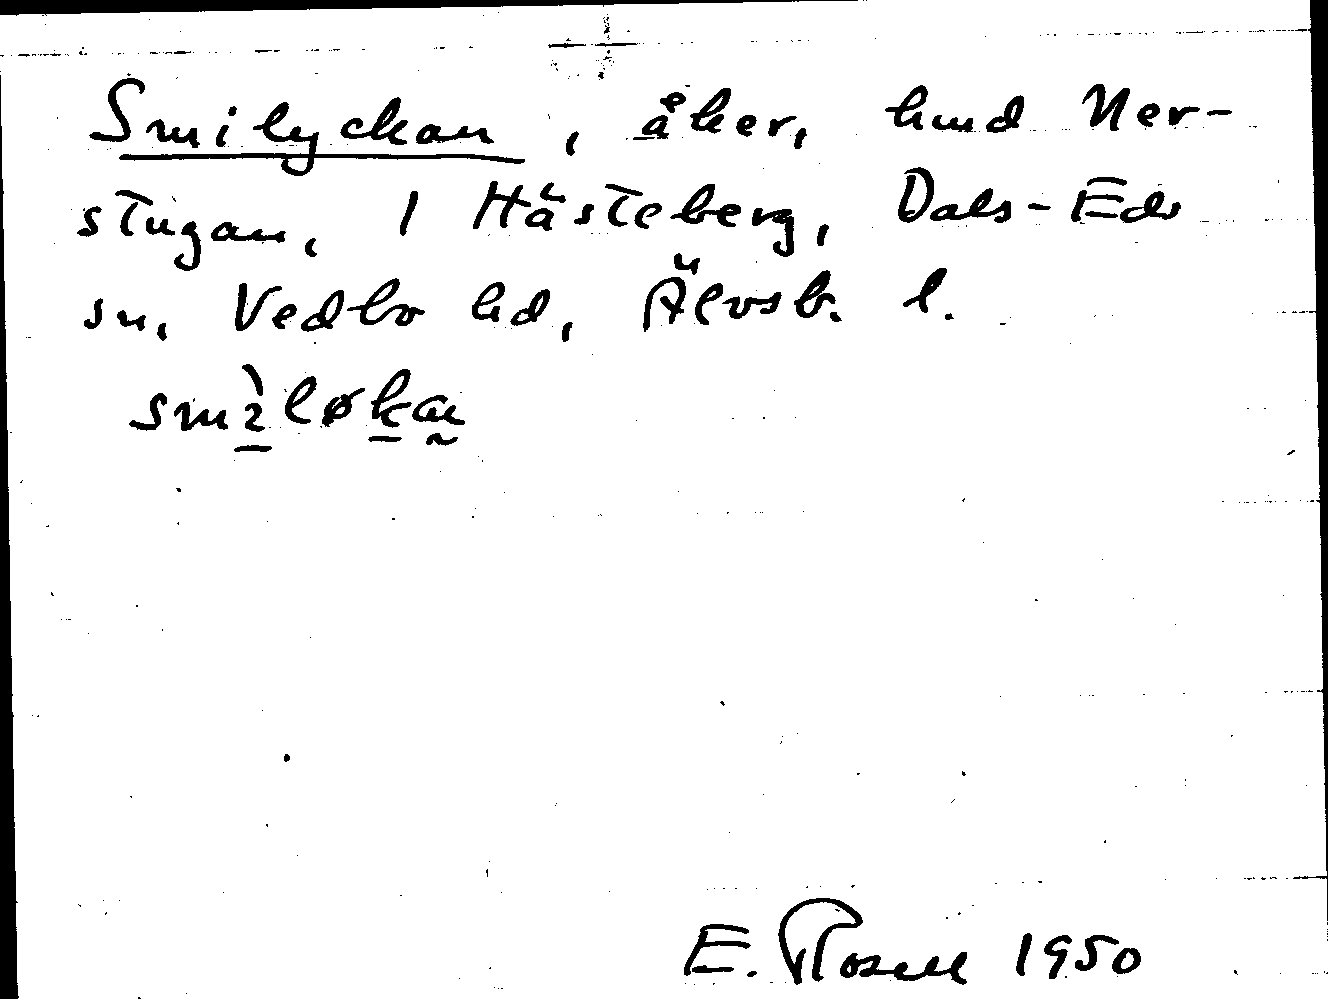 Smilyckan, åker, hmd Ner-
stugan, 1 Hästeberg, Dals-Eds
sn, Vedbo hd, Älvsb. l.
E. Rosell 1950